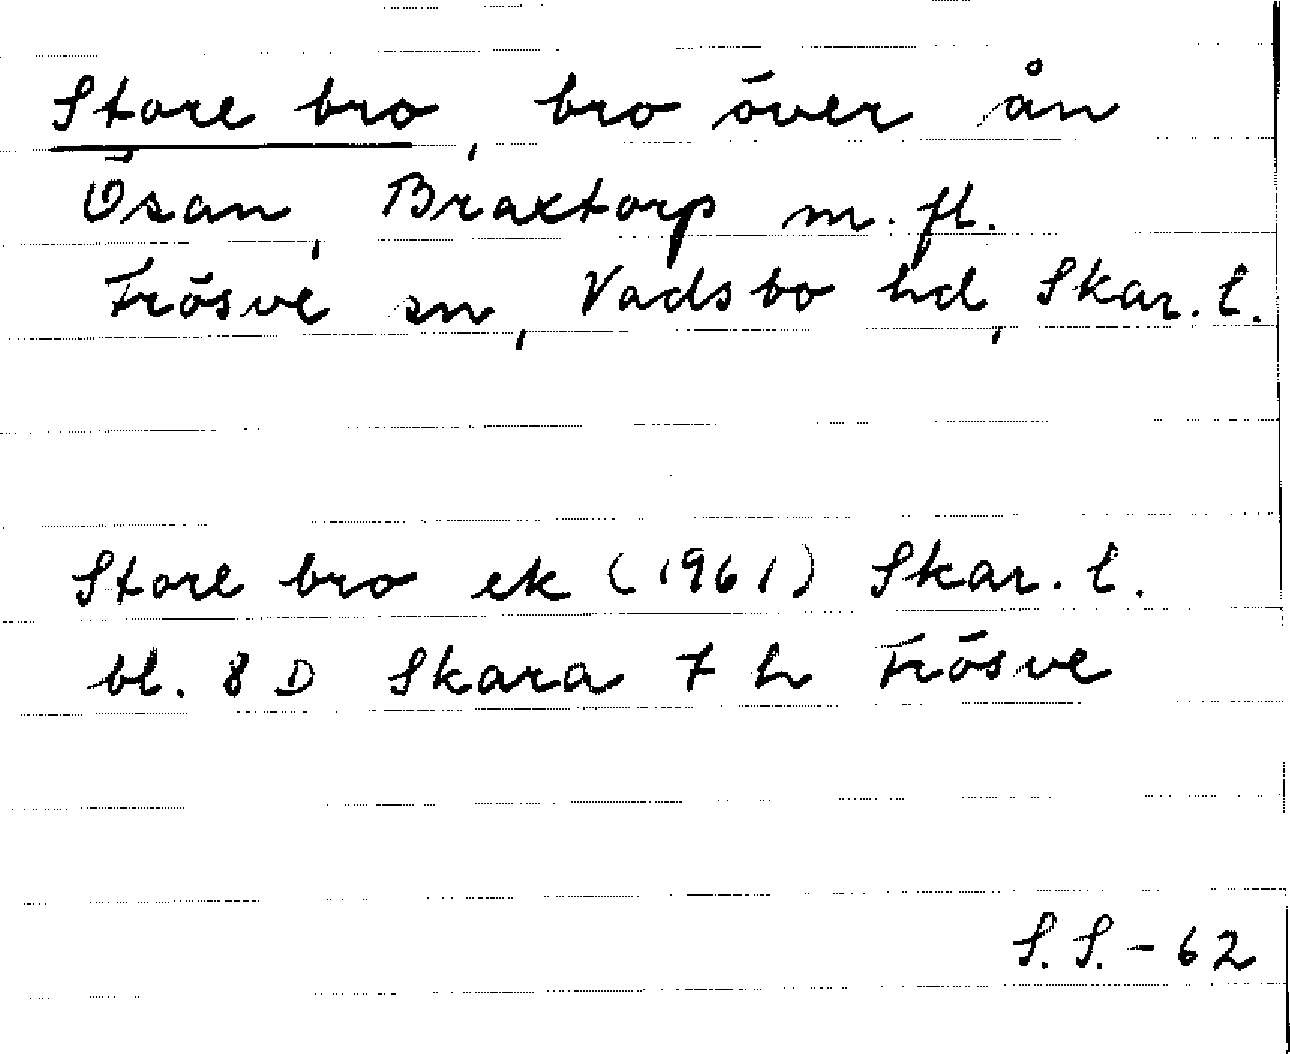 Store bro, bro över ån
Ösan, Braxtorp m. fl.
Frösve sn, Vadsbo hd, Skar. l.
Store bro ek (1961) Skar. l.
bl. 8 D Skara 7 h Frösve
S. S. - 62